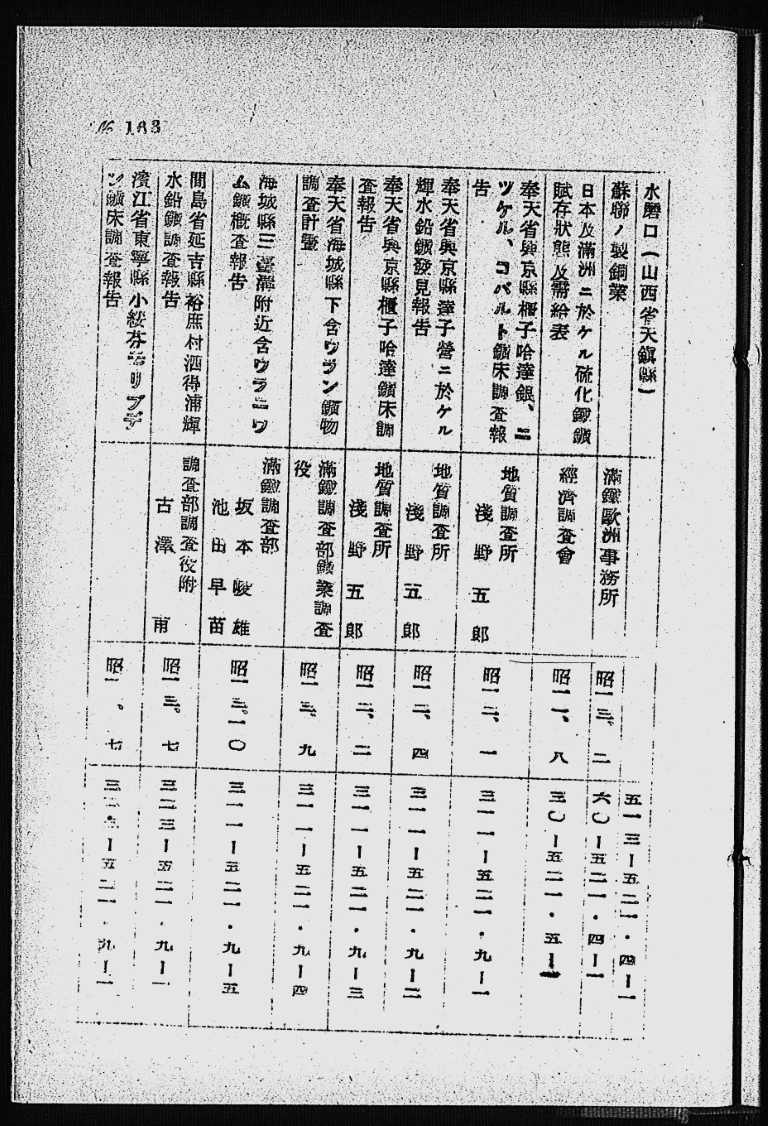 № 183
水磨口(山西省天鎭縣)
五一三—五二一・四—一
蘇聯ノ製銅業
滿鐵歐洲事務所
昭一三、二
六〇—五二一・四—一
日本及滿洲ニ於ケル硫化鐵鑛
賦存狀態及需給表
經濟調查會
昭一一、八
三〇—五二一・五—
奉天省興京縣櫃子哈達銀、ニ
ツケル、コバルト鑛床調查報
告
地質調查所
淺野五郎
昭一二、一
三一一—五二一・九—一
奉天省興京縣達子營ニ於ケル
輝水鉛鑛發見報告
地質調查所
淺野五郎
昭一二、四
三一一—五二一・九—二
奉天省興京縣櫃子哈達鑛床調
查報告
地質調查所
淺野五郎
昭一二、二
三一一—五二一・九—三
奉天省海城縣下含ウラン鑛物
調查計畫
滿鐵調查部鑛業調查
役
昭一三、九
三一一—五二一・九—四
海城縣三臺溝附近含ウラニウ
ム鑛概查報告
滿鐵調查部
坂本峻雄
池田早苗
昭一三、一〇
三一一—五二一・九—五
間島省延吉縣裕庶村洒得浦輝
水鉛鑛調查報告
調查部調查役附
古澤甫
昭一三、七
三二三—五二一・九—一
濱江省東寧縣小綏芬モリブデ
ン鑛床調查報告
昭一、七
五二一・九—一